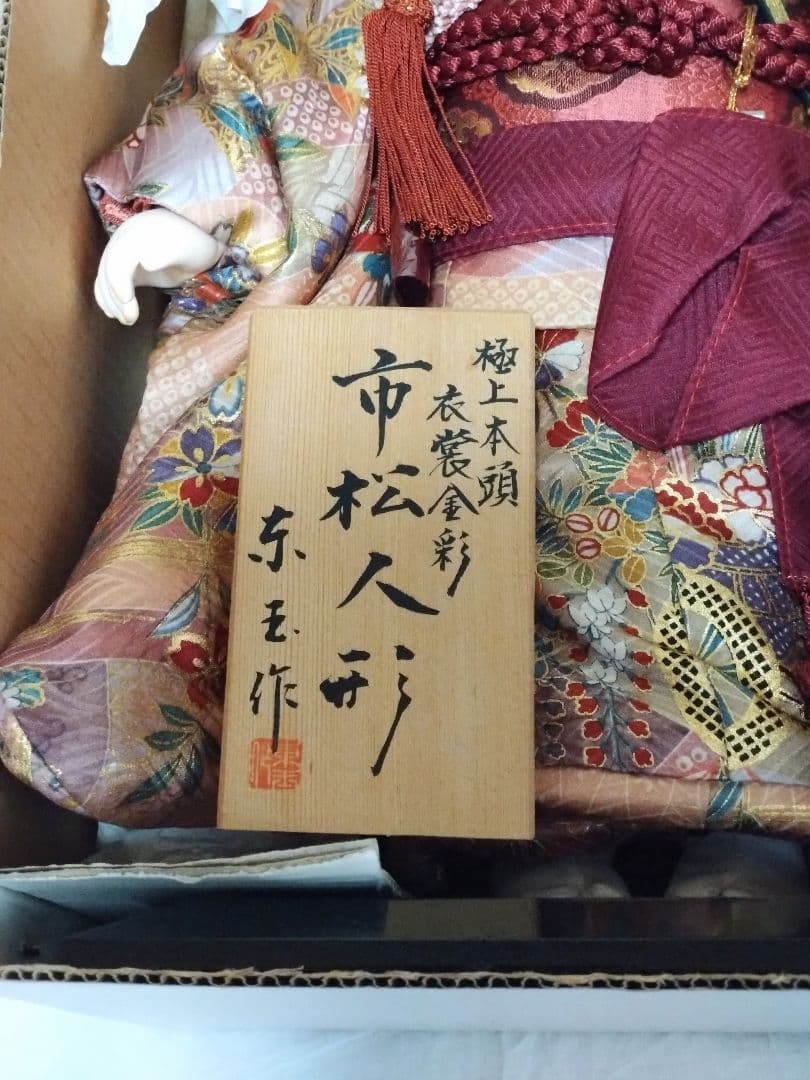 極上本頭
衣裳金彩
市松人形
东玉作